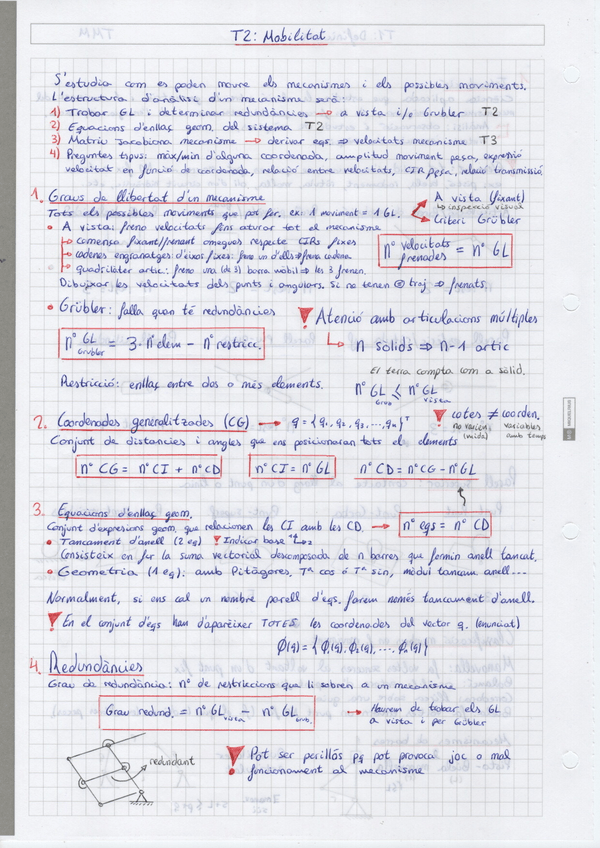 T2: Mobilitat
S'estudia com es poden moure els mecanismes i els possibles moviments.
L'estructura d'anàlisi d'un mecanisme serà:
1) Trobar GL i determinar redundàncies → a vista i/o Grübler T2
2) Equacions d'enllaç geom. del sistema T2
3) Matriu Jacobiana mecanisme → derivar eqs. ⇒ velocitats mecanisme T3
4) Preguntes tipus: màx/min d'alguna coordenada, amplitud moviment peça, expressió
velocitat en funció de coordenada, relació entre velocitats, CIR peça, relació transmissió
1. Graus de llibertat d'un mecanisme
Tots els possibles moviments que pot fer. ex: 1 moviment = 1 GL.
A vista (fixant)
↳ inspecció visual
Criteri Grübler
• A vista: freno velocitats fins aturar tot el mecanisme
→ començo fixant/frenant omegues respecte CIRs fixes
→ cadenes engranatges d'eixos fixes: freno un d'ells ⇒ freno cadena.
→ quadrilàter artic: freno una (de 3) barra mòbil ⇒ les 3 frenen.
nº velocitats frenades = nº GL
Dibuixar les velocitats dels punts i angulars. Si no tenen traj ⇒ frenats.
• Grübler: falla quan té redundàncies
nº GL Grübler = 3·nºelem - nºrestricc.
! Atenció amb articulacions múltiples
↳ n sòlids ⇒ n-1 artic
El terra compta com a sòlid.
Restricció: enllaç entre dos o més elements.
nº GL Grub ≤ nº GL vista
2. Coordenades generalitzades (CG) → q = {q₁, q₂, q₃, ..., qₙ}ᵀ
! cotes ≠ coorden.
no varien (mida)
variables amb temps
Conjunt de distàncies i angles que ens posicionaran tots el elements
nº CG = nº CI + nº CD
nº CI = nº GL
nº CD = nº CG - nº GL
3. Equacions d'enllaç geom.
Conjunt d'expresions geom. que relacionen les CI amb les CD. → nº eqs = nº CD
• Tancament d'anell (2 eq) ! Indicar base 1 2
Consisteix en fer la suma vectorial descomposada de n barres que formin anell tancat.
• Geometria (1 eq): amb Pitàgores, Tª cos ó Tª sin, mòdul tancam. anell...
Normalment, si ens cal un nombre parell d'eqs. farem només tancament d'anell.
! En el conjunt d'eqs han d'aparèixer TOTES les coordenades del vector q. (enunciat)
ϕ(q) = {ϕ₁(q), ϕ₂(q), ..., ϕₙ(q)}
4. Redundàncies
Grau de redundància: nº de restriccions que li sobren a un mecanisme
Grau redund. = nº GL vista - nº GL Grub.
→ Haurem de trobar els GL
a vista i per Grübler
redundant
! Pot ser perillós pq pot provocà joc o mal
funcionament al mecanisme